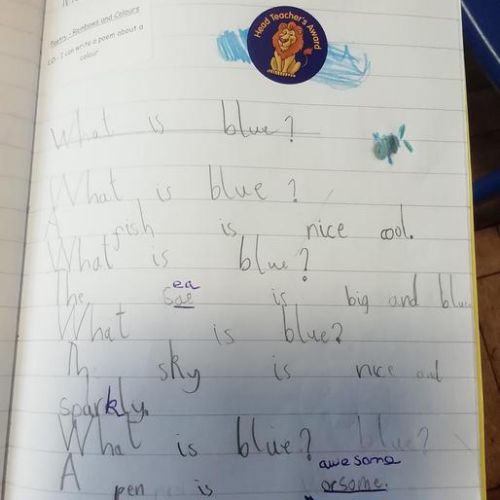 Head Teacher's Award
Poetry - Rainbows and Colours
LO - I can write a poem about a
colour
What is blue?
What is blue?
A fish is nice cool.
What is blue?
ea
The sae is big and blue
What is blue?
The sky is nice and
sparkly.
What is blue? blue?
awesome
A pen is orsome.